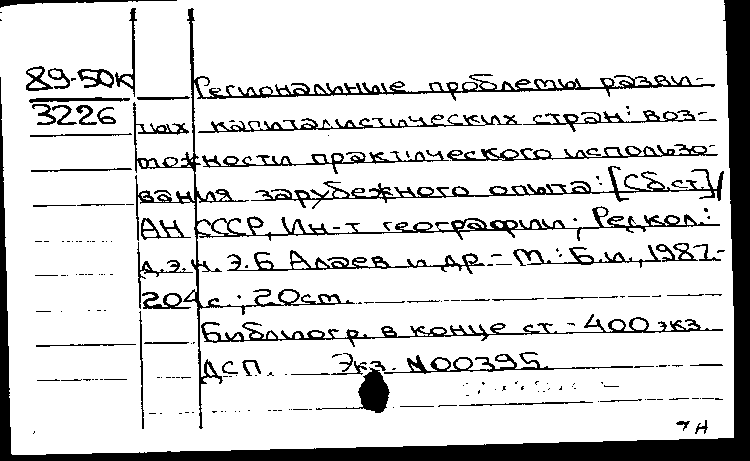 89-50к
3226
Региональные проблемы разви-
тых капиталистических стран: воз-
можности практического использо-
вания зарубежного опыта: [Сб.ст.]/
АН СССР, Ин-т географии; Редкол.:
д.э.н. Э.Б Алаев и др. - М.: Б.и., 1987.-
204 с.; 20 см.
Библиогр. в конце ст. - 400 экз.
ДСП. Экз. №00395.